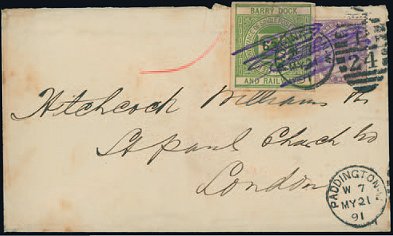 BARRY DOCK
AND RAIL
24
Hitchcock Williams
St paul Church
London
PADDINGTON
W 7
MY 21
91